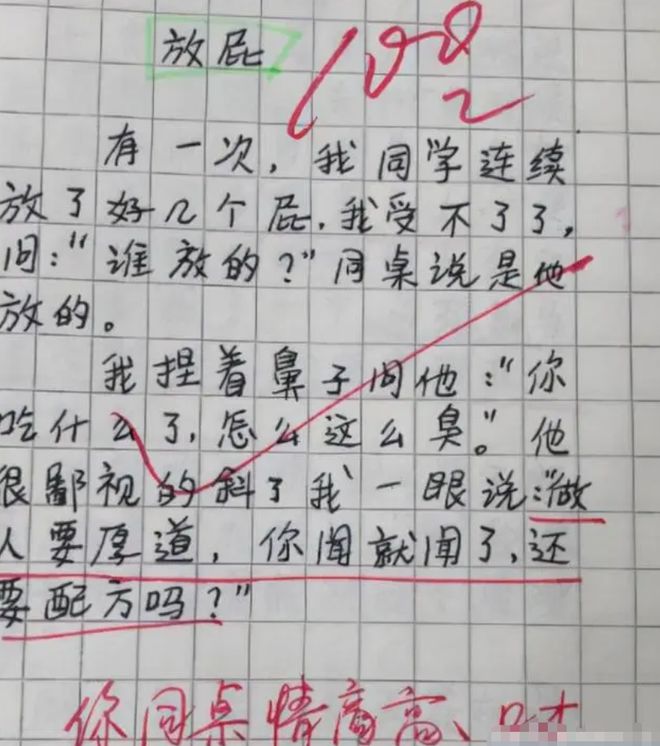 放屁
100
2
有一次，我同学连续
放了好几个屁，我受不了了，
问："谁放的？"同桌说是他
放的。
我捏着鼻子问他："你
吃什么了，怎么这么臭。"他
很鄙视的斜了我一眼说："做
人要厚道，你闻就闻了，还
要配方吗？"
你同桌情商高、